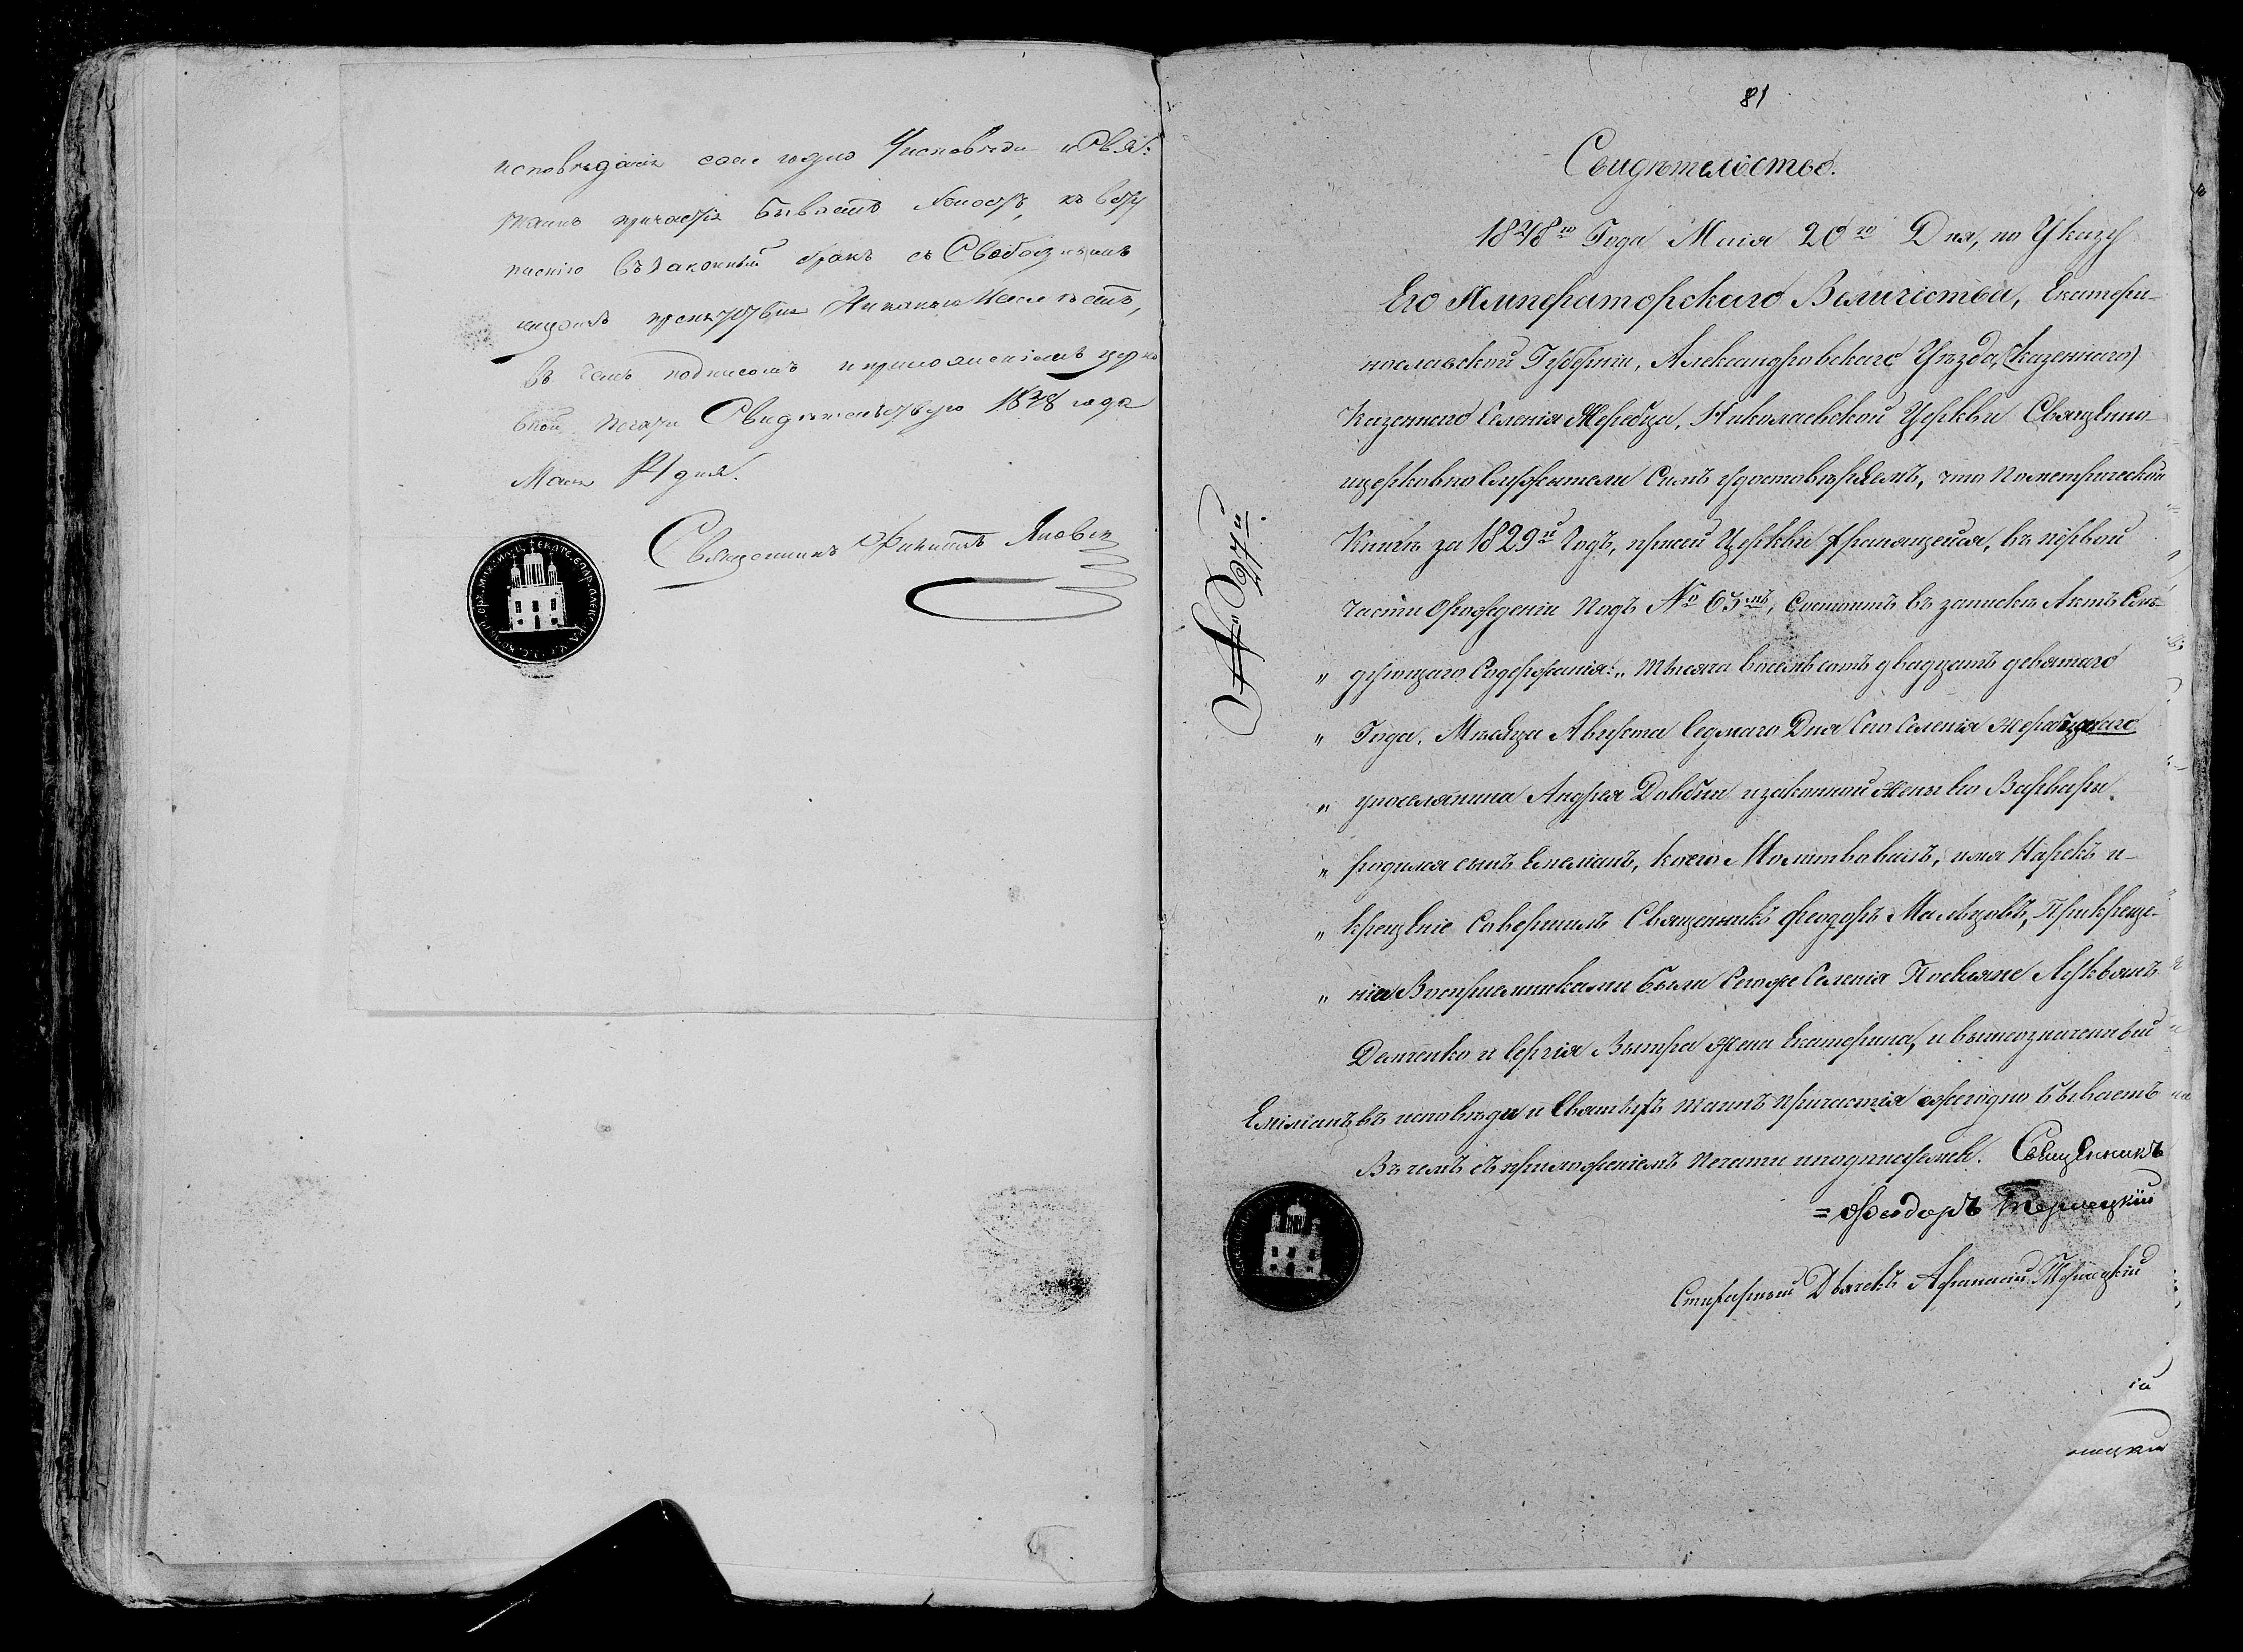 исповѣданія ежегодно У исповѣди и Свя:
таинъ причастія бываетъ холостъ, къ всту
пленію въ законный бракъ съ Свободнымъ
лицомъ препятствия Никакихъ Неимѣетъ,
въ чемъ подписомъ и приложеніемъ церко
вной печати Свидѣтельствую 1848 года
Маія 21 дня.
Священникъ Яковъ
81
Свидѣтельство.
1848го Года Маія 20го Дня, по Указу
Его Императорскаго Величества, Екатери-
нославской Губерніи, Александровскаго Уѣзда, (казеннаго)
Казеннаго Селенія Жеребца, Николаевской Церкви Священно-
церковно Служители Симъ удостовѣряемъ, что По метрической
Книгѣ за 1829й Годъ, при сей Церкви хранящейся, въ первой
части О рожденіи Подъ № 63мъ, Состоитъ въ запискѣ Актъ Слѣ-
„ дующаго Содержанія: „ Тысяча восемь сотъ двадцать девятаго
„ Года, Мѣсяца Августа Седмаго Дня Сего Селенія Жеребцанаго
„ у поселянина Андрея Довбни и законной Жены его Варвары
„ родился сынъ Емеліанъ, коего Молитвовалъ, имя Нарекъ и-
„ Крещеніе Совершилъ Священникъ Феодоръ Мальцовъ, При креще-
„ ніи Воспріемниками были Сегоже Селенія Поселяне Лукьянъ
Демченко и Сергія Жена Екатерина, и вышеозначенный
Емиліанъ въ исповѣди и Святыхъ таинъ причастія ежегодно бываетъ
Въ чемъ съ приложеніемъ печати и подписуемся. Священникъ
= Феодоръ Терлецкій
Дьячекъ Афанасій Терлецкій